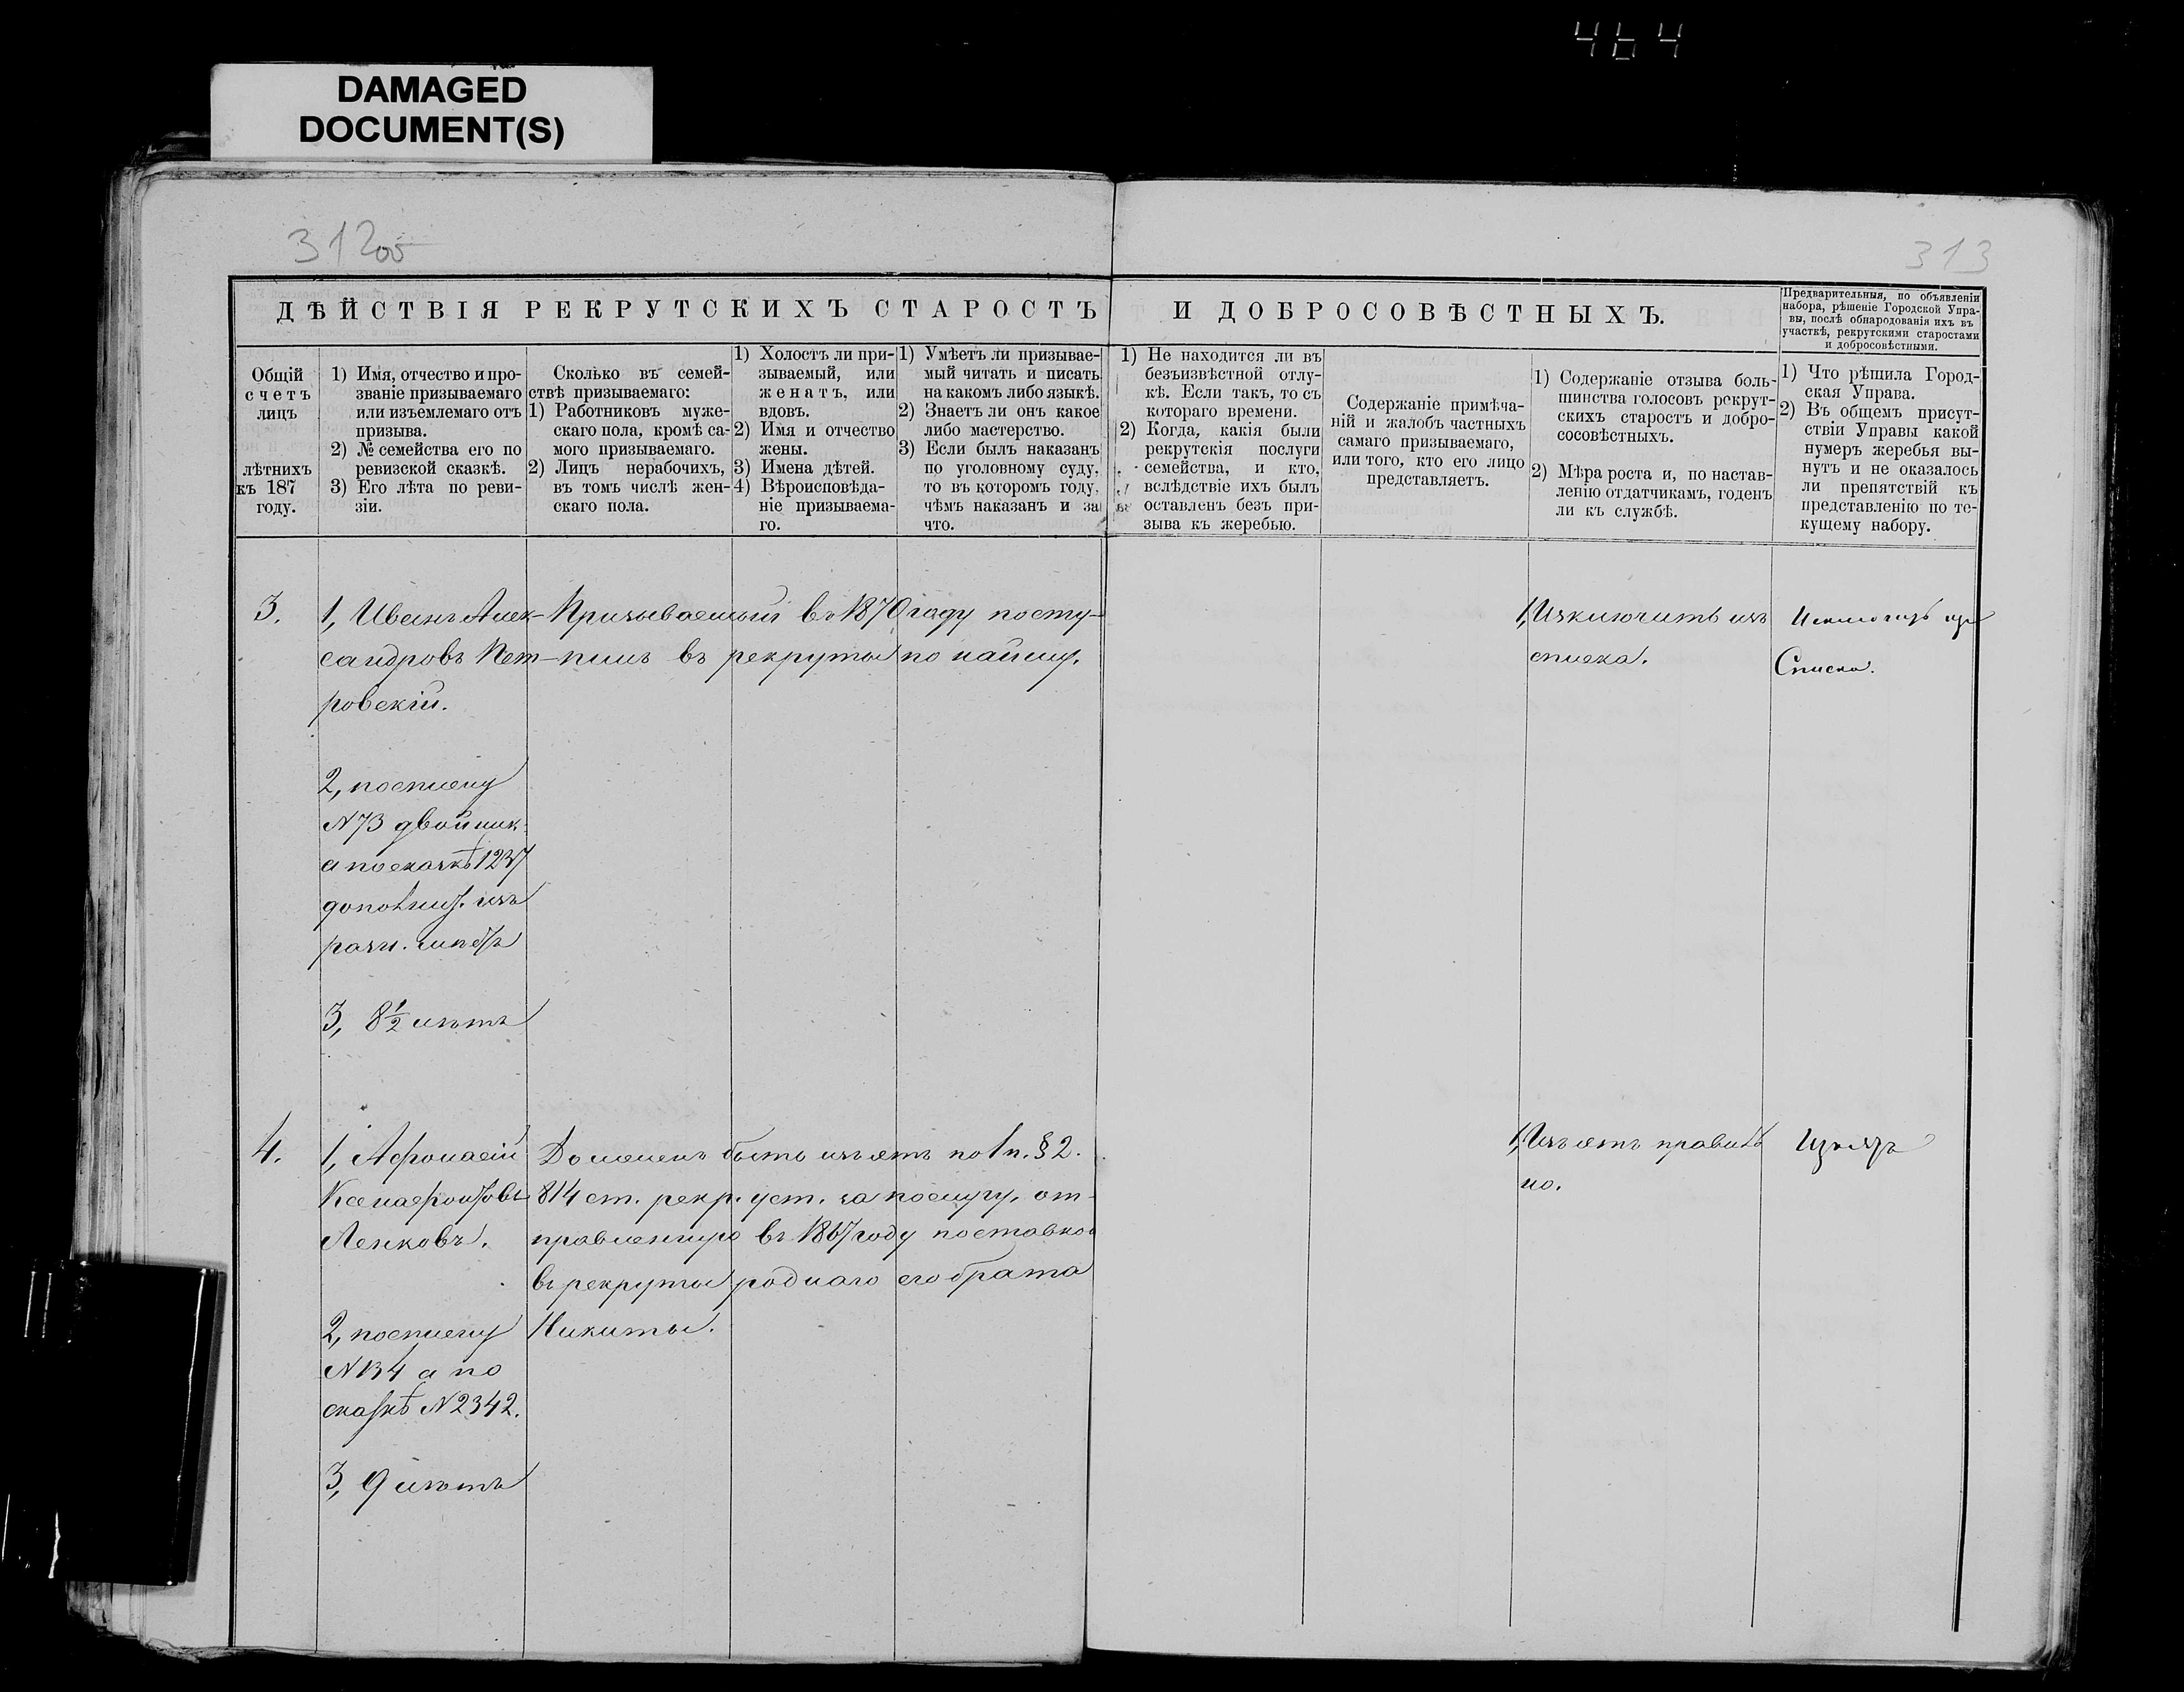 464
DAMAGED
DOCUMENT(S)
312об
313
ДѢЙСТВІЯ РЕКРУТСКИХЪ СТАРОСТЪ
И ДОБРОСОВѢСТНЫХЪ.
Предварительныя, по объявленіи
набора, рѣшеніе Городской Упра-
вы, послѣ обнародованія ихъ въ
участкѣ, рекрутскими старостами
и добросовѣстными.
Общій
счетъ
лицъ
лѣтнихъ
къ 187
году.
1) Имя, отчество и про-
званіе призываемаго
или изъемлемаго отъ
призыва.
2) № семейства его по
ревизской сказкѣ.
3) Его лѣта по реви-
зіи.
Сколько въ семей-
ствѣ призываемаго:
1) Работниковъ муже-
скаго пола, кромѣ са-
мого призываемаго.
2) Лицъ нерабочихъ,
въ томъ числѣ жен-
скаго пола.
1) Холостъ ли при-
зываемый, или
женатъ, или
вдовъ.
2) Имя и отчество
жены.
3) Имена дѣтей.
4) Вѣроисповѣда-
ніе призываема-
го.
1) Умѣетъ ли призывае-
мый читать и писать
на какомъ либо языкѣ.
2) Знаетъ ли онъ какое
либо мастерство.
3) Если былъ наказанъ
по уголовному суду,
то въ которомъ году,
чѣмъ наказанъ и за
что.
1) Не находится ли въ
безъизвѣстной отлу-
кѣ. Если такъ, то съ
котораго времени.
2) Когда, какія были
рекрутскія послуги
семейства, и кто,
вслѣдствіе ихъ былъ
оставленъ безъ при-
зыва къ жеребью.
Содержаніе примѣча-
ній и жалобъ частныхъ
самаго призываемаго,
или того, кто его лицо
представляетъ.
1) Содержаніе отзыва боль-
шинства голосовъ рекрут-
скихъ старостъ и добро-
совѣстныхъ.
2) Мѣра роста и, по настав-
ленію отдатчикамъ, годенъ
ли къ службѣ.
1) Что рѣшила Город-
ская Управа.
2) Въ общемъ присут-
ствіи Управы какой
нумеръ жеребья вы-
нутъ и не оказалось
ли препятствій къ
представленію по те-
кущему набору.
3.
1, Иванъ Алек-
сандровъ Пет-
ровскій.
2, по списку
N 73 двойник.
а по сказкѣ 1237
дополнит. изъ
разн.
3, 8½ лѣтъ
Призываемый въ 1870 году посту-
пилъ въ рекруты по найму.
1, Изключить изъ
списка.
Исключить из
Списка.
4.
1, Афонасій
Ксенафонтовъ
Ленковъ.
2, по списку
N 134 а по
сказкѣ N 2342.
3, 9 лѣтъ
Долженъ быть изъятъ по 1 п. § 2.
814 ст. рекр. уст. за послугу, от-
правленную въ 1867 году поставкою
въ рекруты роднаго его брата
Никиты.
1, Изъятъ правиль
но.
Изъятъ